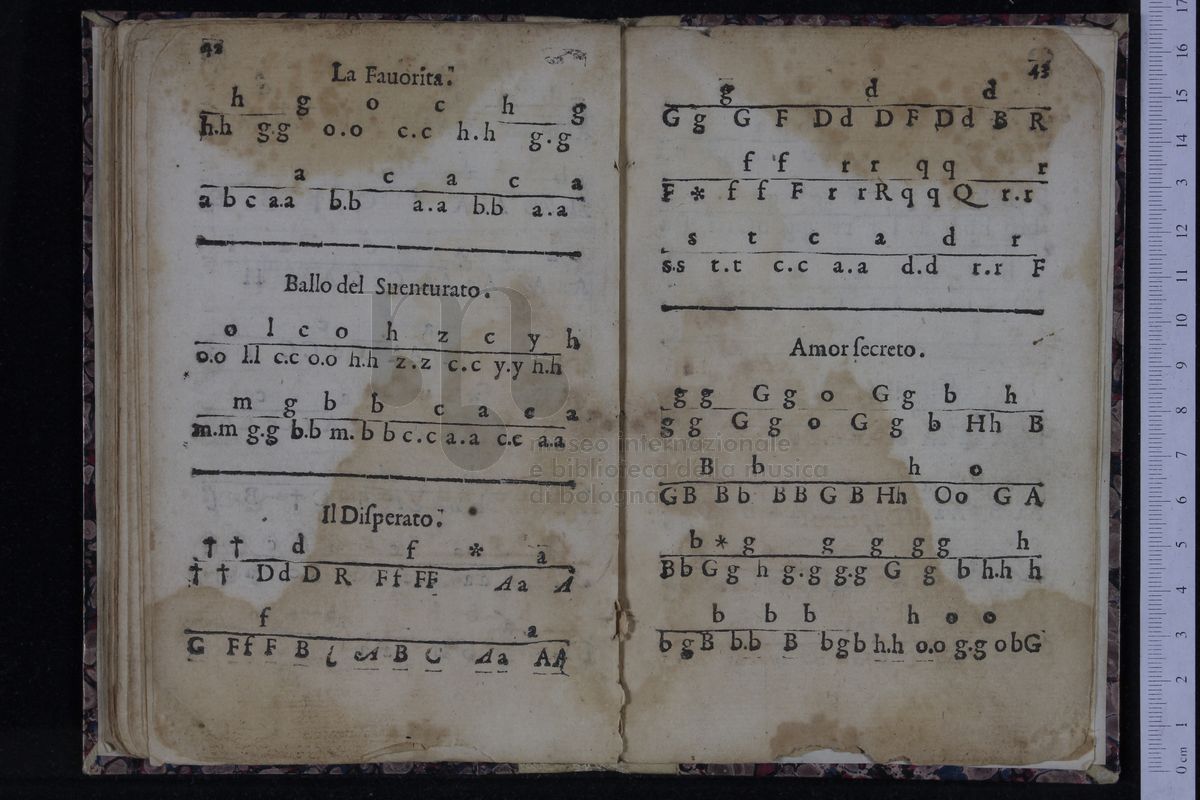 42
La Fauorita.
h g o c h g
h.h g.g o.o c.c h.h g.g
a c a c a
a b c a.a b.b a.a b.b a.a
Ballo del Suenturato.
o l c o h z c y h
o.o l.l c.c o.o h.h z.z c.c y.y h.h
m g b b c a c a
m.m g.g b.b m. b b c.c a.a c.c a.a
Il Disperato.
† † d f * a
† † D d D R F f F F A a A
f a
G F f F B A B C A a A A
43
g d d
G g G F D d D F D d B R
f f r r q q r
F * f f F r r R q q Q r.r
s t c a d r
s.s t.t c.c a.a d.d r.r F
Amor ſecreto.
g g G g o G g b h
g g G g o G g b H h B
B b h o
G B B b B B G B H h O o G A
b * g g g g g h
B b G g h g.g g.g G g b h.h h
b b b h o o
b g B b.b B b g b h.h o.o g.g o b G
museo internazionale
e biblioteca della musica
di bologna
0 cm 1 2 3 4 5 6 7 8 9 10 11 12 13 14 15 16 17